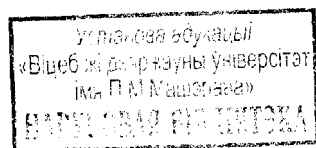 Установа адукацыі
«Віцебскі дзяржаўны ўніверсітэт
імя П.М.Машэрава»
НАВУКОВАЯ БІБЛІЯТЭКА